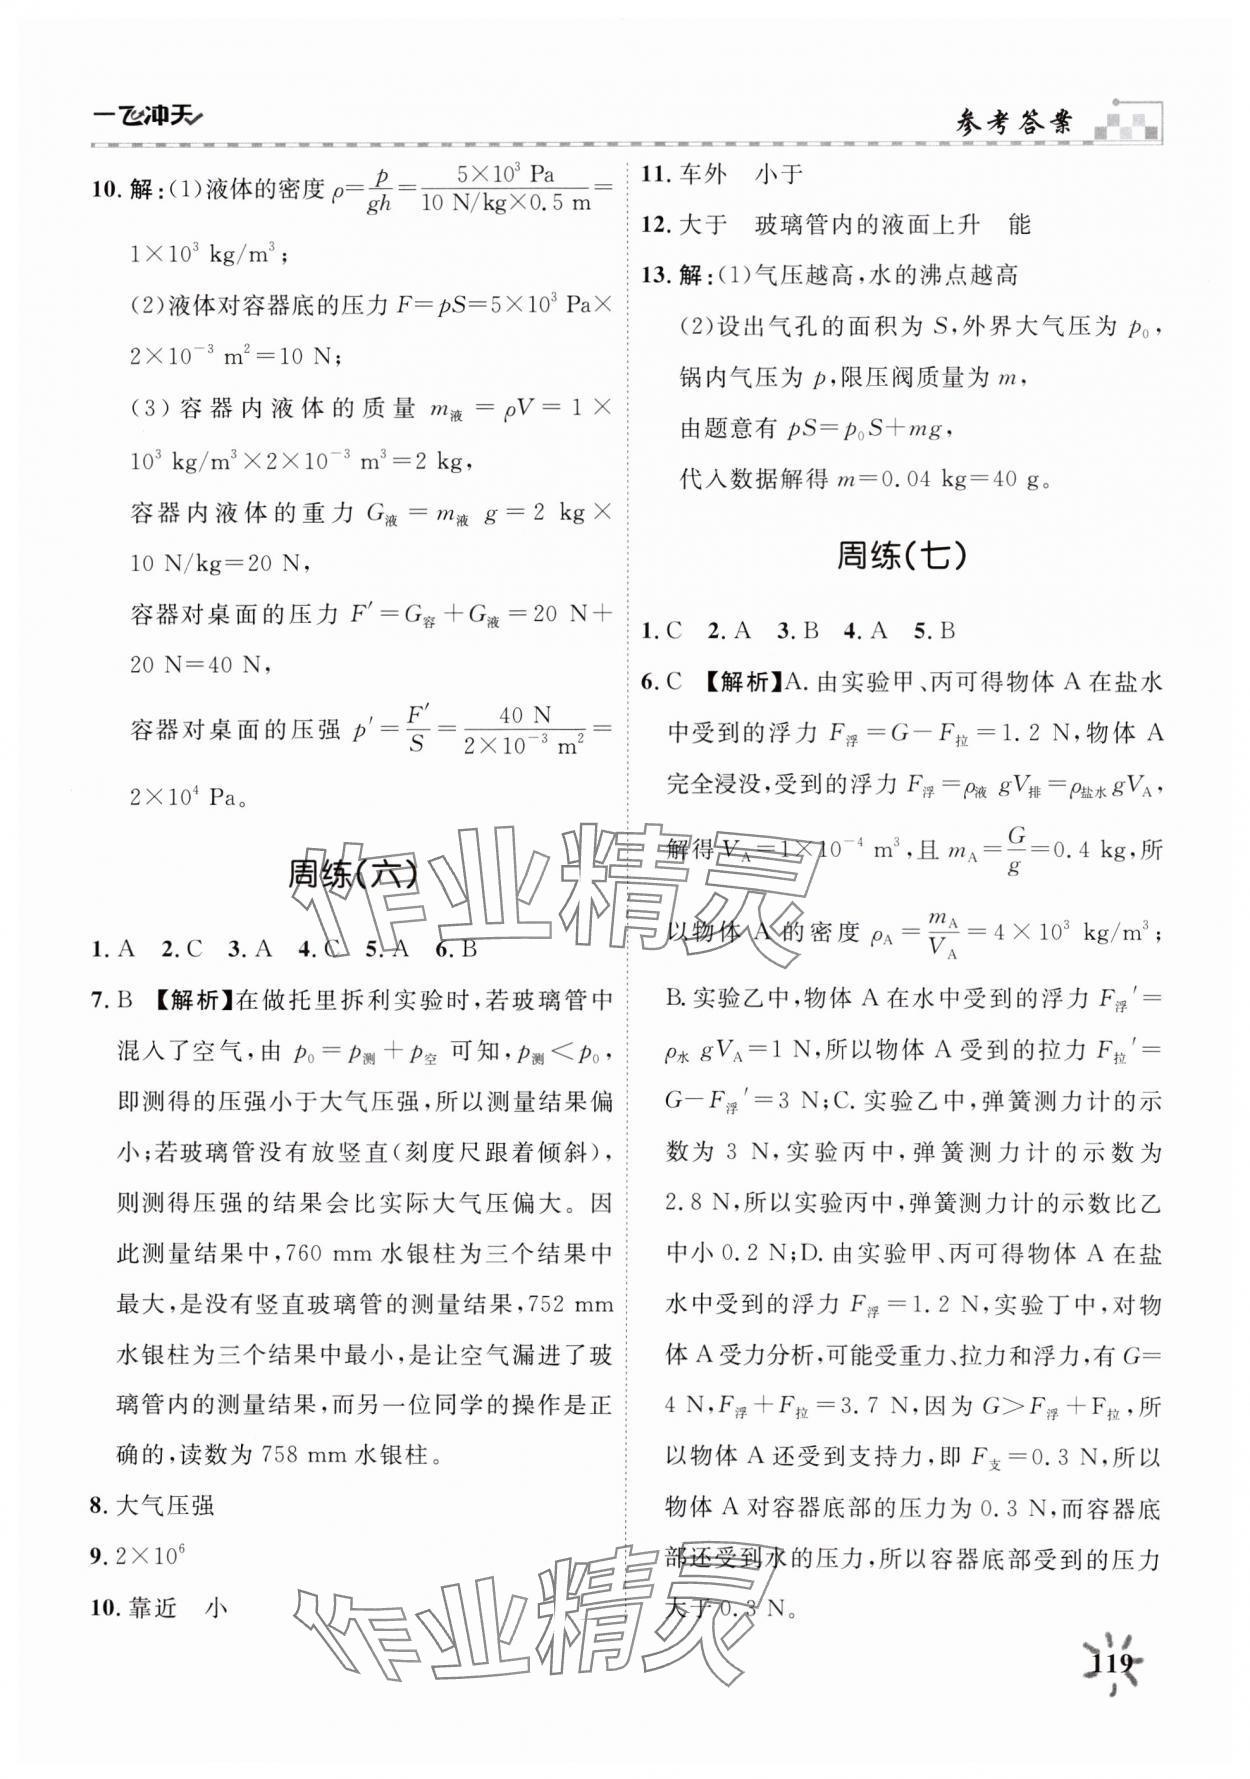 一飞冲天
参考答案
10. 解:(1)液体的密度 ρ=p/gh=5×10³ Pa/(10 N/kg×0.5 m)=
1×10³ kg/m³;
(2)液体对容器底的压力 F=pS=5×10³ Pa×
2×10⁻³ m²=10 N;
(3)容器内液体的质量 m液=ρV=1×
10³ kg/m³×2×10⁻³ m³=2 kg,
容器内液体的重力 G液=m液 g=2 kg×
10 N/kg=20 N,
容器对桌面的压力 F′=G容+G液=20 N+
20 N=40 N,
容器对桌面的压强 p′=F′/S=40 N/(2×10⁻³ m²)=
2×10⁴ Pa。
周练(六)
1. A 2. C 3. A 4. C 5. A 6. B
7. B 【解析】在做托里拆利实验时,若玻璃管中
混入了空气,由 p₀=p测+p空 可知,p测<p₀,
即测得的压强小于大气压强,所以测量结果偏
小;若玻璃管没有放竖直(刻度尺跟着倾斜),
则测得压强的结果会比实际大气压偏大。因
此测量结果中,760 mm水银柱为三个结果中
最大,是没有竖直玻璃管的测量结果,752 mm
水银柱为三个结果中最小,是让空气漏进了玻
璃管内的测量结果,而另一位同学的操作是正
确的,读数为758 mm水银柱。
8. 大气压强
9. 2×10⁶
10. 靠近 小
11. 车外 小于
12. 大于 玻璃管内的液面上升 能
13. 解:(1)气压越高,水的沸点越高
(2)设出气孔的面积为 S,外界大气压为 p₀,
锅内气压为 p,限压阀质量为 m,
由题意有 pS=p₀S+mg,
代入数据解得 m=0.04 kg=40 g。
周练(七)
1. C 2. A 3. B 4. A 5. B
6. C 【解析】A.由实验甲、丙可得物体 A 在盐水
中受到的浮力 F浮=G-F拉=1.2 N,物体 A
完全浸没,受到的浮力 F浮=ρ液 gV排=ρ盐水gVA,
解得 VA=1×10⁻⁴ m³,且 mA=G/g=0.4 kg,所
以物体 A 的密度 ρA=mA/VA=4×10³ kg/m³;
B.实验乙中,物体 A 在水中受到的浮力 F浮′=
ρ水 gVA=1 N,所以物体 A 受到的拉力 F拉′=
G-F浮′=3 N;C.实验乙中,弹簧测力计的示
数为 3 N,实验丙中,弹簧测力计的示数为
2.8 N,所以实验丙中,弹簧测力计的示数比乙
中小0.2 N;D.由实验甲、丙可得物体 A 在盐
水中受到的浮力 F浮=1.2 N,实验丁中,对物
体 A 受力分析,可能受重力、拉力和浮力,有 G=
4 N,F浮+F拉=3.7 N,因为 G>F浮+F拉,所
以物体 A 还受到支持力,即 F支=0.3 N,所以
物体 A 对容器底部的压力为 0.3 N,而容器底
部还受到水的压力,所以容器底部受到的压力
大于0.3 N。
作业精灵
作业精灵
119